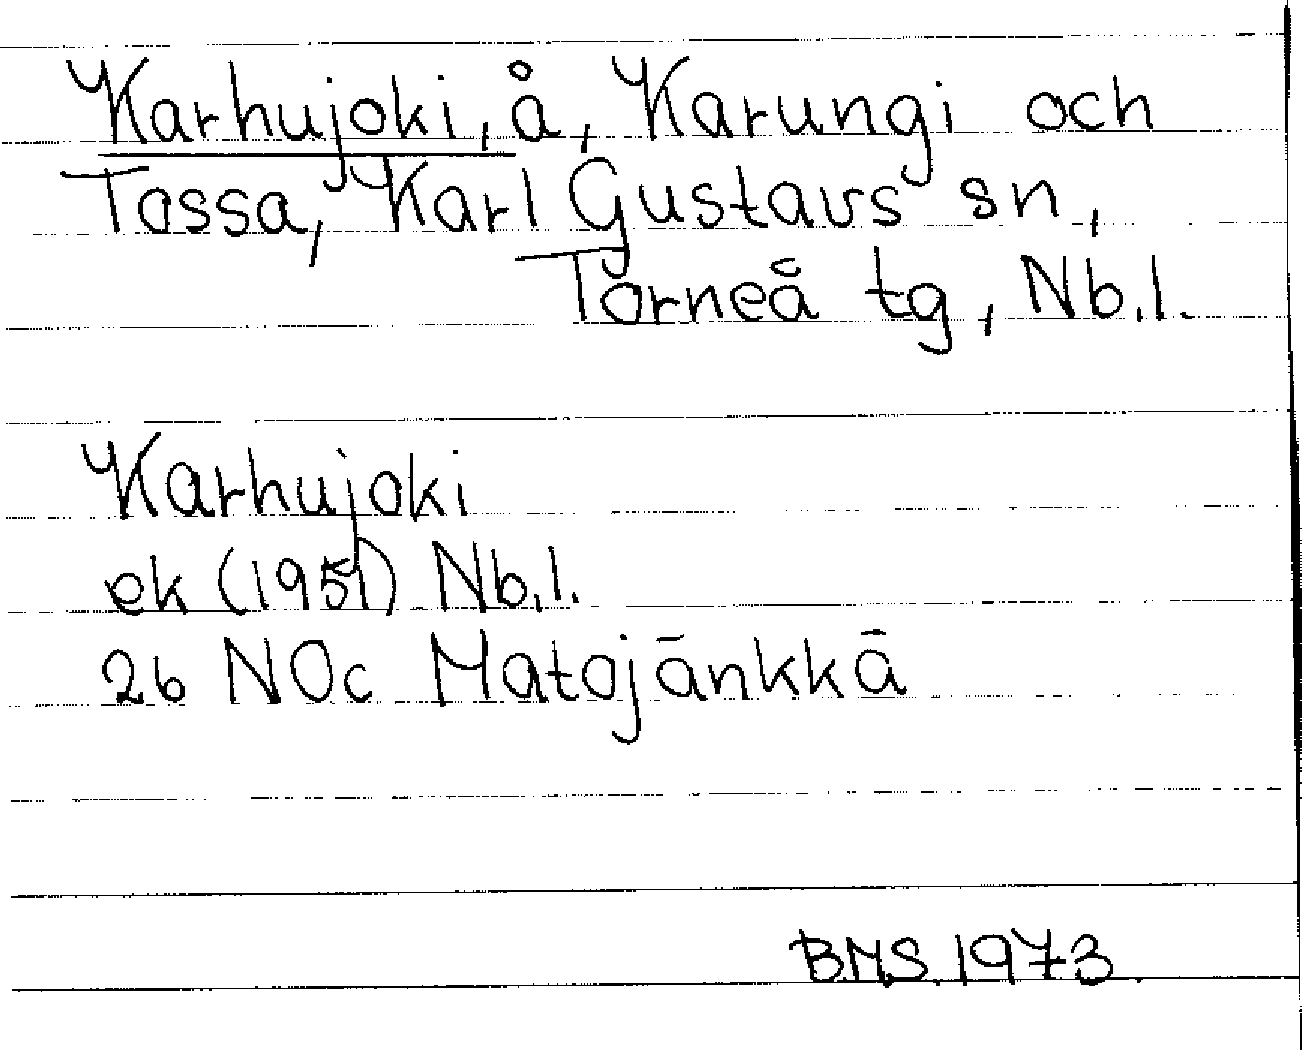 Karhujoki, å, Karungi och
Tossa, Karl Gustavs sn,
Torneå tg, Nb.l.
Karhujoki
ek (1951) Nb.l.
26 NOc Matojänkkä
BMS. 1973.